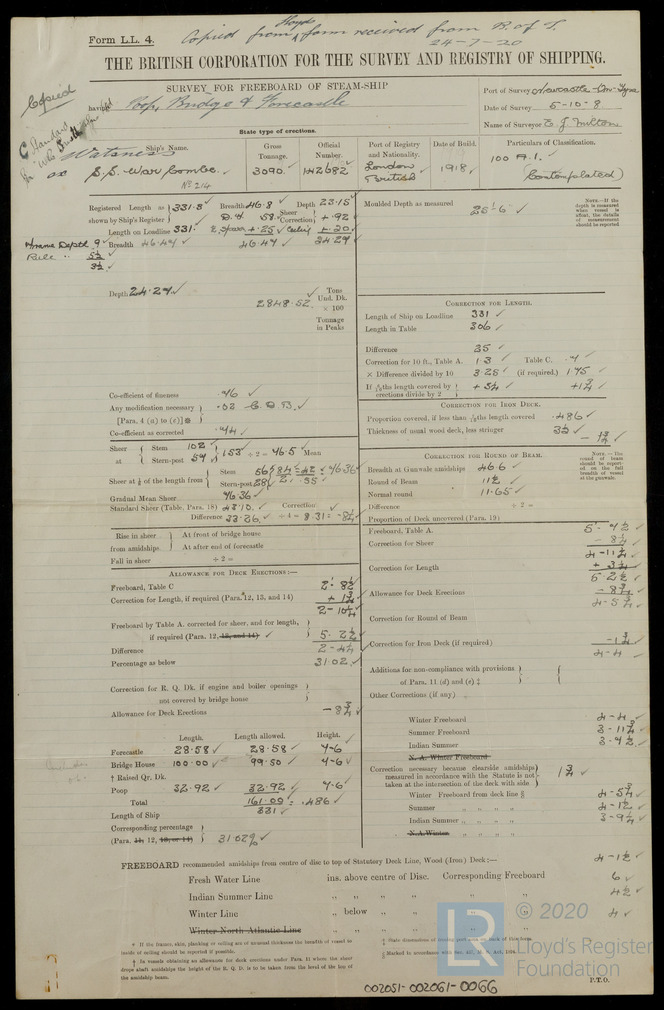 Form L.L. 4.
Copied from Lloyds form received from B. of T.
24-7-20
THE BRITISH CORPORATION FOR THE SURVEY AND REGISTRY OF SHIPPING.
Copied
SURVEY FOR FREEBOARD OF STEAM-SHIP
having Poop, Bridge & Forecastle
State type of erections.
Port of Survey Newcastle-On-Tyne
Date of Survey 5-10-8
Name of Surveyor E. J. Milton
Ship's Name.
Gross Tonnage.
Official Number.
Port of Registry and Nationality.
Date of Build.
Particulars of Classification.
Watsness
ex S.S. War Combe.
No 214
3090.
142682
London
British
1918
100 A.1.
(Contemplated)
Registered Length as shown by Ship's Register 331.3 Breadth 46.8 Depth 23.15
Sheer Correction + .92
Length on Loadline 331 + .25 + .20
Breadth 46.47 46.47 24.27
Depth 24.27
2848.52 Tons Und. Dk. × 100
Tonnage in Peaks
Moulded Depth as measured 25'6"
NOTE.—If the depth is measured when vessel is afloat, the details of measurement should be reported
CORRECTION FOR LENGTH.
Length of Ship on Loadline 331
Length in Table 306
Difference 25
Correction for 10 ft., Table A. 1.3 Table C. .7
× Difference divided by 10 3.25 (if required.) 1.75
If 6/10ths length covered by erections divide by 2 + 3¼ + 1¾
CORRECTION FOR IRON DECK.
Proportion covered, if less than 7/10ths length covered .486
Thickness of usual wood deck, less stringer 3½ - 1¾
Co-efficient of fineness .76
Any modification necessary [Para. 4 (a) to (e)]* .02 C.D.B.
Co-efficient as corrected .74
Sheer at Stem 102 Stern-post 54 153 ÷ 2 = 76.5 Mean
Sheer at ⅛ of the length from Stem 56 Stern-post 28 84 ÷ 2 = 42 ÷ .55 76.36
Gradual Mean Sheer 76.36
Standard Sheer (Table, Para. 18) 43.10 Correction
Difference 33.26 ÷ 4 = 8.31 = -8¼
CORRECTION FOR ROUND OF BEAM.
Breadth at Gunwale amidships 46.6
Round of Beam 11½
Normal round 11.65
Difference ÷ 2 =
Proportion of Deck uncovered (Para. 19)
NOTE.—The round of beam should be reported on the full breadth of vessel at the gunwale.
Rise in sheer from amidships At front of bridge house
At after end of forecastle
Fall in sheer ÷ 2 =
ALLOWANCE FOR DECK ERECTIONS:—
Freeboard, Table C 2'-8½
Correction for Length, if required (Para. 12, 13, and 14) + 1¾
2-10¼
Freeboard by Table A. corrected for sheer, and for length, if required (Para. 12, 13, and 14) 5.2½
Difference 2-4¼
Percentage as below 31.02
Correction for R. Q. Dk. if engine and boiler openings not covered by bridge house
Allowance for Deck Erections - 8¾
Length. Length allowed. Height.
Forecastle 28.58 28.58 7-6
Bridge House 100.00 99.50 7-6
† Raised Qr. Dk.
Poop 32.92 32.92 7-6
Total 161.00 = .486
Length of Ship 331
Corresponding percentage (Para. 11, 12, 13, or 14) 31.02%
Freeboard, Table A. 5'-7½
Correction for Sheer - 8¼
4-11¼
Correction for Length + 3¼
5.2½
Allowance for Deck Erections - 8¾
4-5¾
Correction for Round of Beam
Correction for Iron Deck (if required) - 1¾
4-4
Additions for non-compliance with provisions of Para. 11 (d) and (e) ‡
Other Corrections (if any)
Winter Freeboard 4-4
Summer Freeboard 3-11¾
Indian Summer 3-9½
N. A. Winter Freeboard
Correction necessary because clearside amidships measured in accordance with the Statute is not taken at the intersection of the deck with side 1¾
Winter Freeboard from deck line § 4-5¾
Summer „ „ „ „ 4-1½
Indian Summer „ „ „ 3-9¼
N.A. Winter
FREEBOARD recommended amidships from centre of disc to top of Statutory Deck Line, Wood (Iron) Deck:— 4-1½
Fresh Water Line ins. above centre of Disc. Corresponding Freeboard 6
Indian Summer Line „ „ „ „ 4½
Winter Line „ below „ „ „ 4
Winter North Atlantic Line „ „ „ „
* If the frames, skin, planking or ceiling are of unusual thickness the breadth of vessel to inside of ceiling should be reported if possible.
† In vessels obtaining an allowance for deck erections under Para. 11 where the sheer drops abaft amidships the height of the R. Q. D. is to be taken from the level of the top of the amidship beam.
P.T.O.
© 2020
LR
Lloyd's Register
Foundation
002051-002061-0066